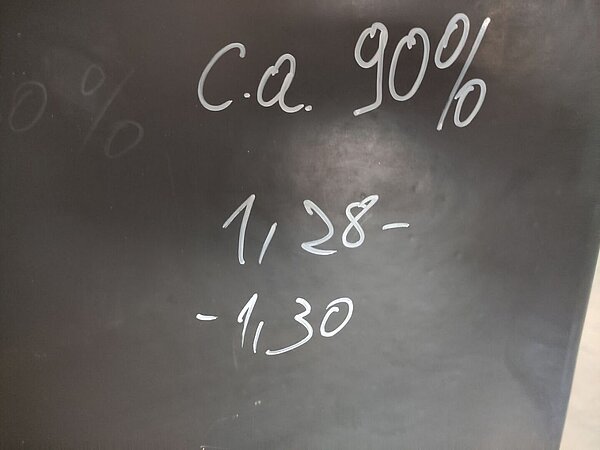 c.a. 90%
1,28-
-1,30
0%